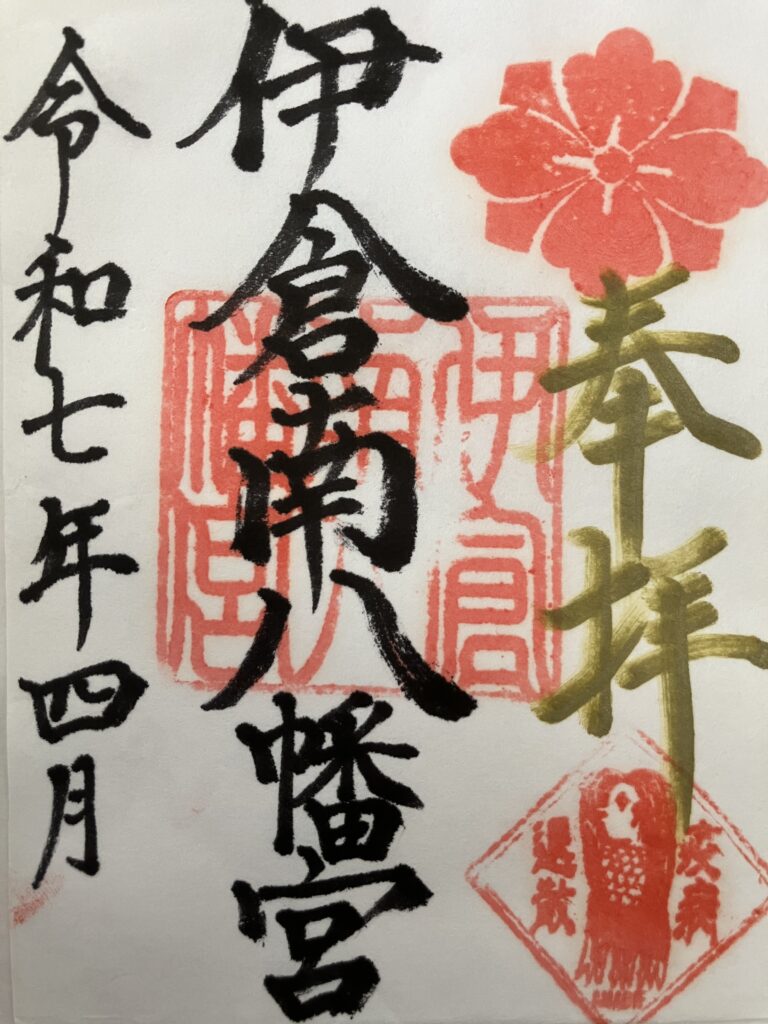 奉拝
伊倉南八幡宮
令和七年四月
伊倉
南八
幡宮
疫病
退散